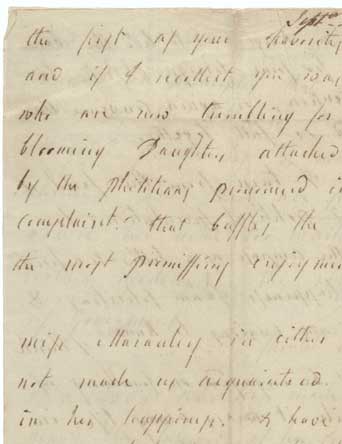 Sept
the first of your favorite
and if I recollect you was
who are now trembling for
blooming Daughter attached
by the phisitians pronounced in
complaint. that baffles the
the most promissing enjoyme
miss in either
not made us acquainted.
in her & have